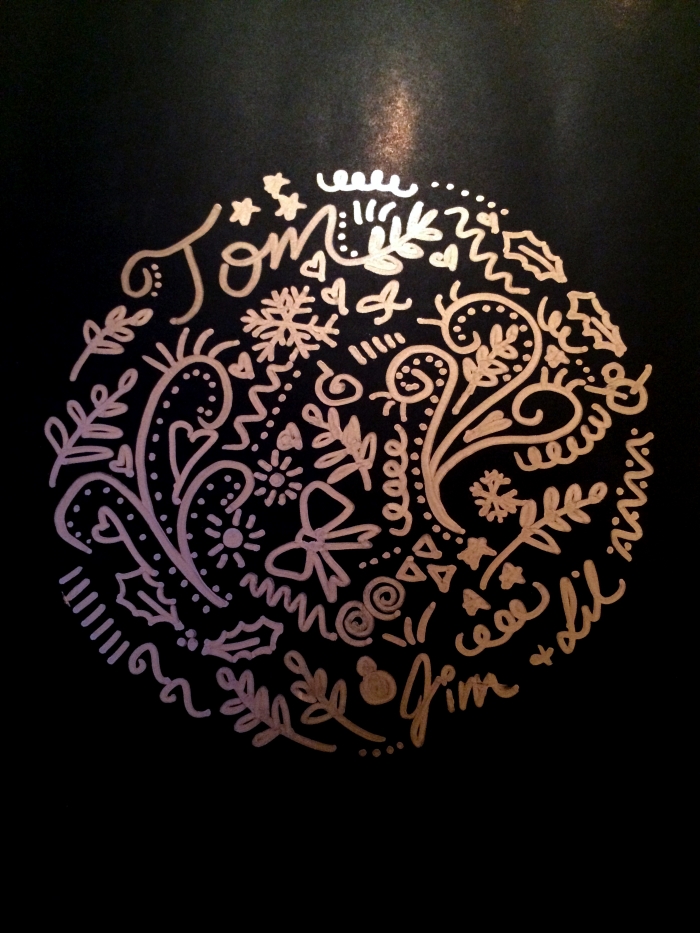 Tom
Jim
+ Lil